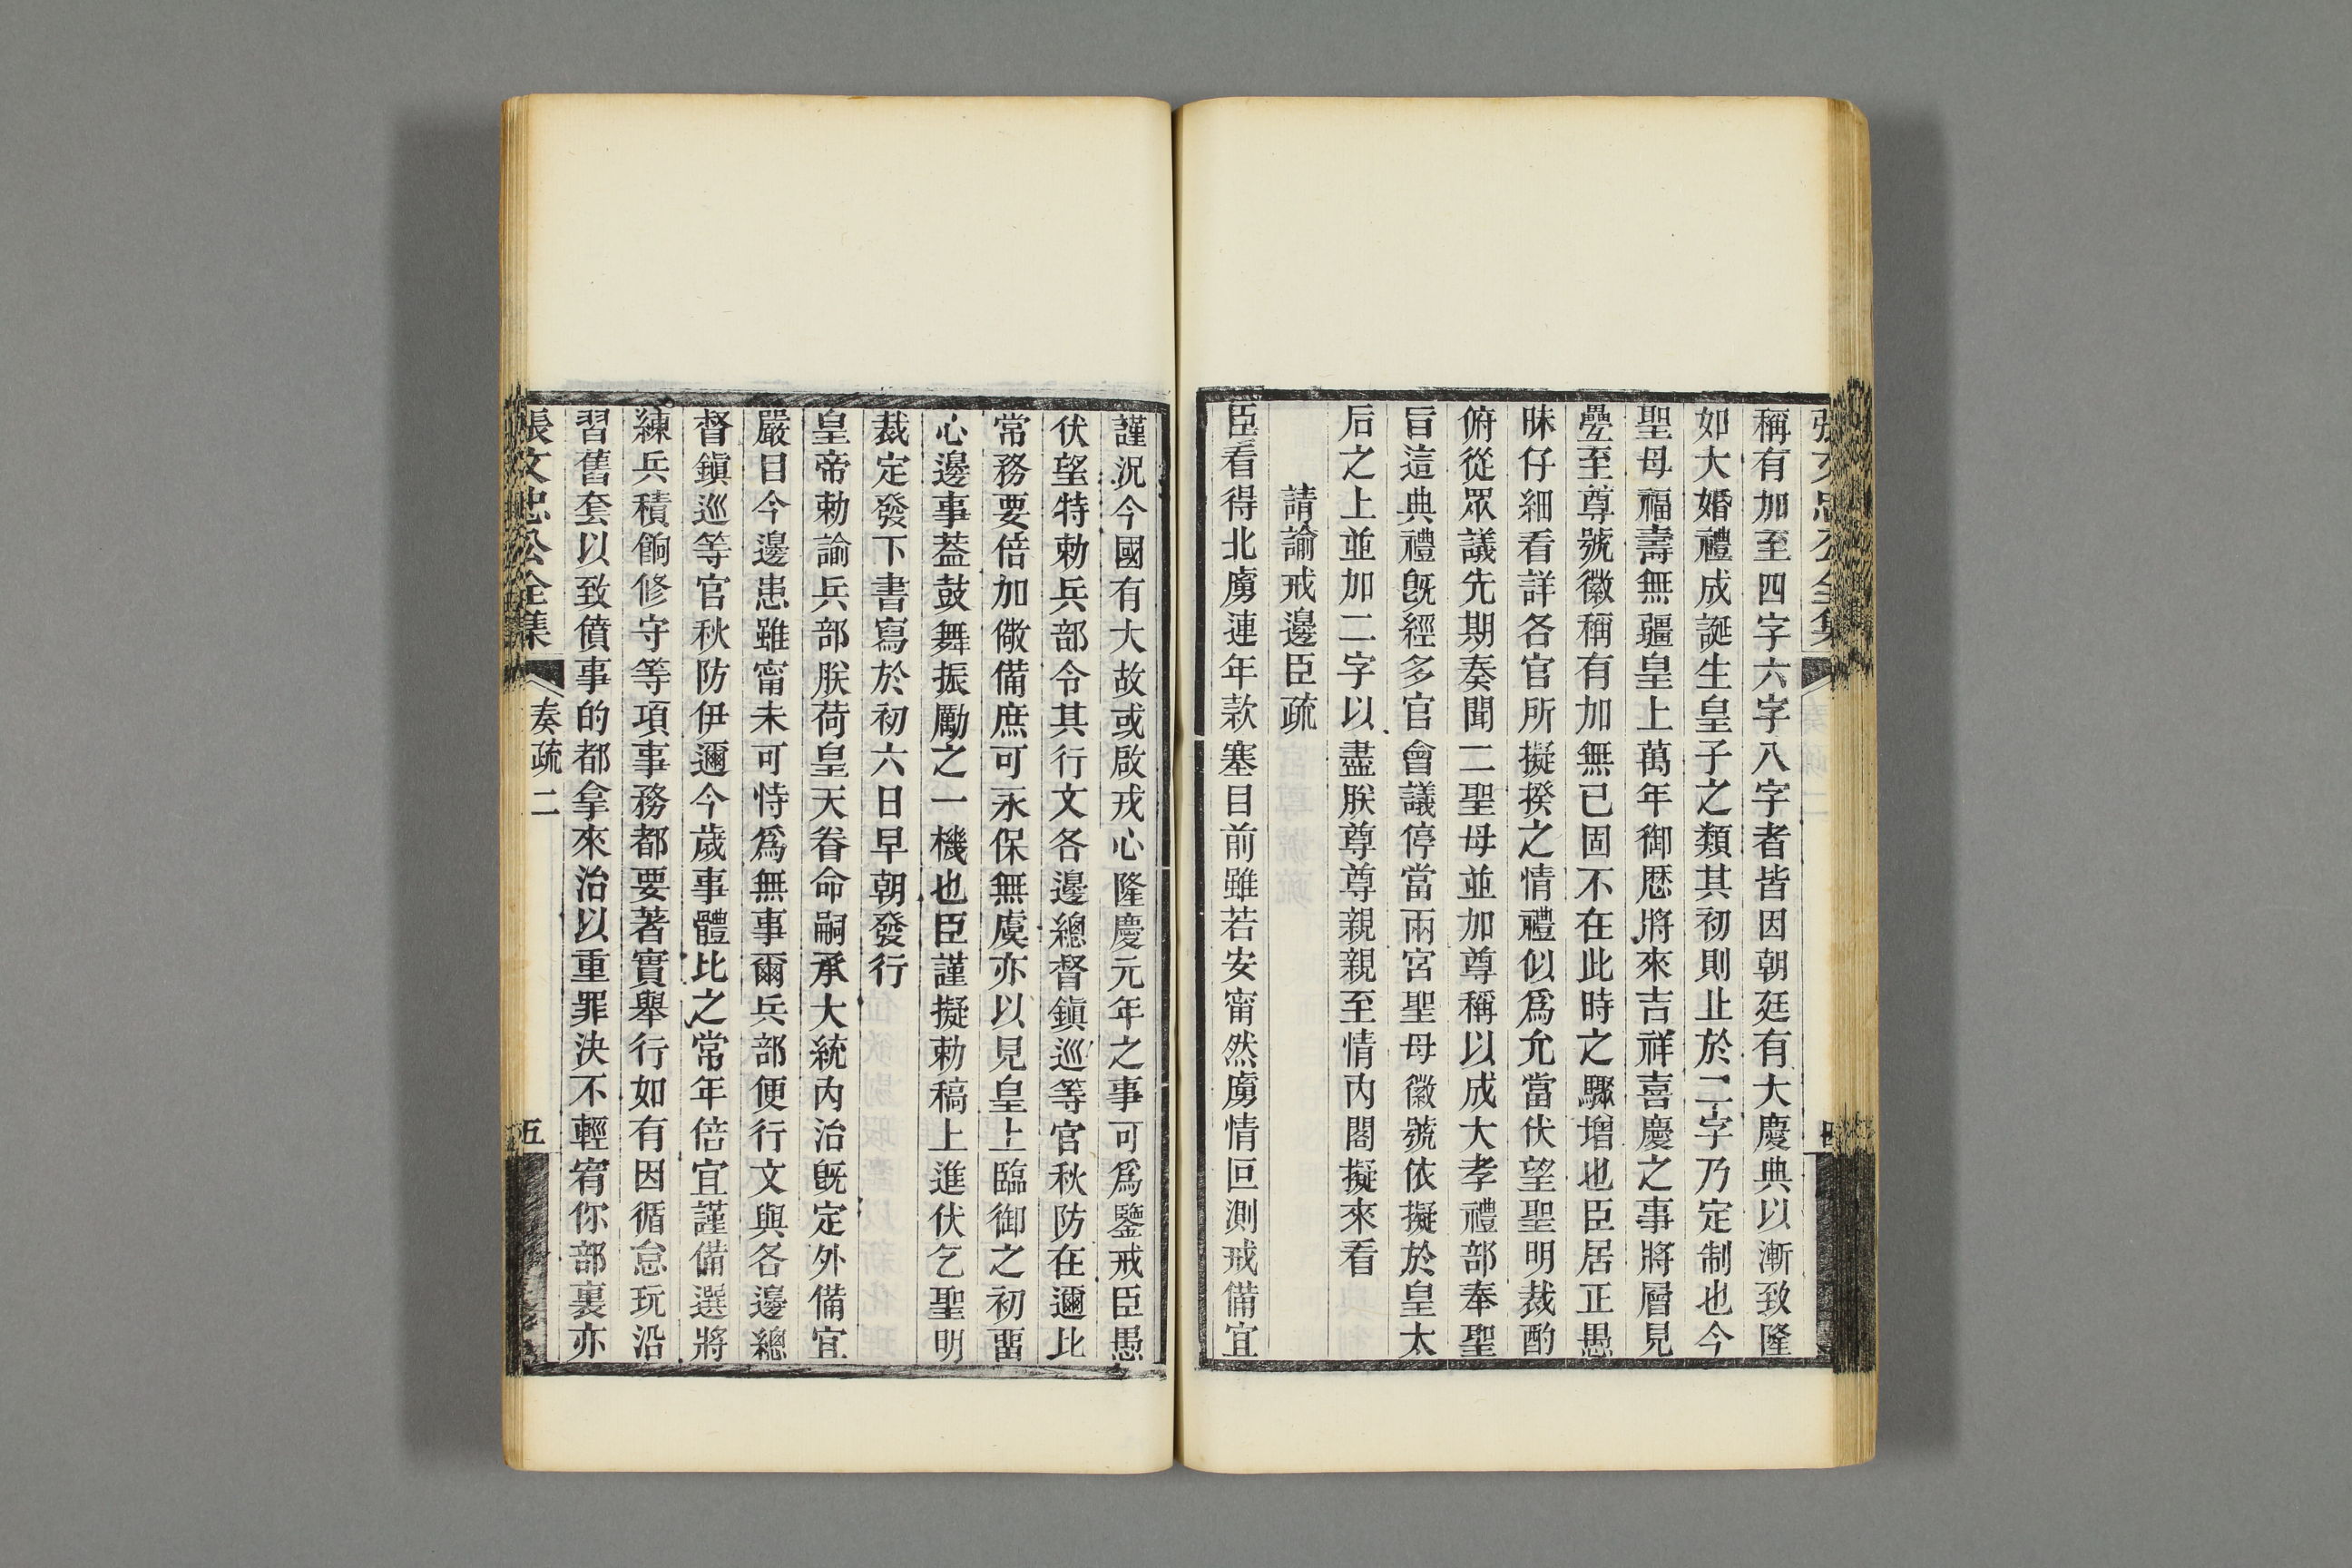 張文忠公全集 四
稱有加至四字六字八字者皆因朝廷有大慶典以漸致隆
如大婚禮成誕生皇子之類其初則止於二字乃定制也今
聖母福壽無疆皇上萬年御歴將來吉祥喜慶之事將層見
疊至尊號徽稱有加無已固不在此時之驟增也臣居正愚
昧仔細看詳各官所擬揆之情禮似爲允當伏望聖明裁酌
俯從眾議先期奏聞二聖母並加尊稱以成大孝禮部奉聖
旨這典禮旣經多官會議停當兩宮聖母徽號依擬於皇太
后之上並加二字以盡朕尊尊親親至情内閣擬來看
請諭戒邊臣疏
臣看得北虜連年款塞目前雖若安甯然虜情叵測戒備宜
謹況今國有大故或啟戎心隆慶元年之事可爲鑒戒臣愚
伏望特勅兵部令其行文各邊總督鎭巡等官秋防在邇比
常務要倍加儆備庶可永保無虞亦以見皇上臨御之初畱
心邊事葢鼓舞振勵之一機也臣謹擬勅稿上進伏乞聖明
裁定發下書寫於初六日早朝發行
皇帝勅諭兵部朕荷皇天眷命嗣承大統内治旣定外備宜
嚴目今邊患雖甯未可恃爲無事爾兵部便行文與各邊總
督鎭巡等官秋防伊邇今歲事體比之常年倍宜謹備選將
練兵積餉修守等項事務都要著實舉行如有因循怠玩沿
習舊套以致僨事的都拿來治以重罪決不輕宥你部裏亦
張文忠公全集 奏疏二 五